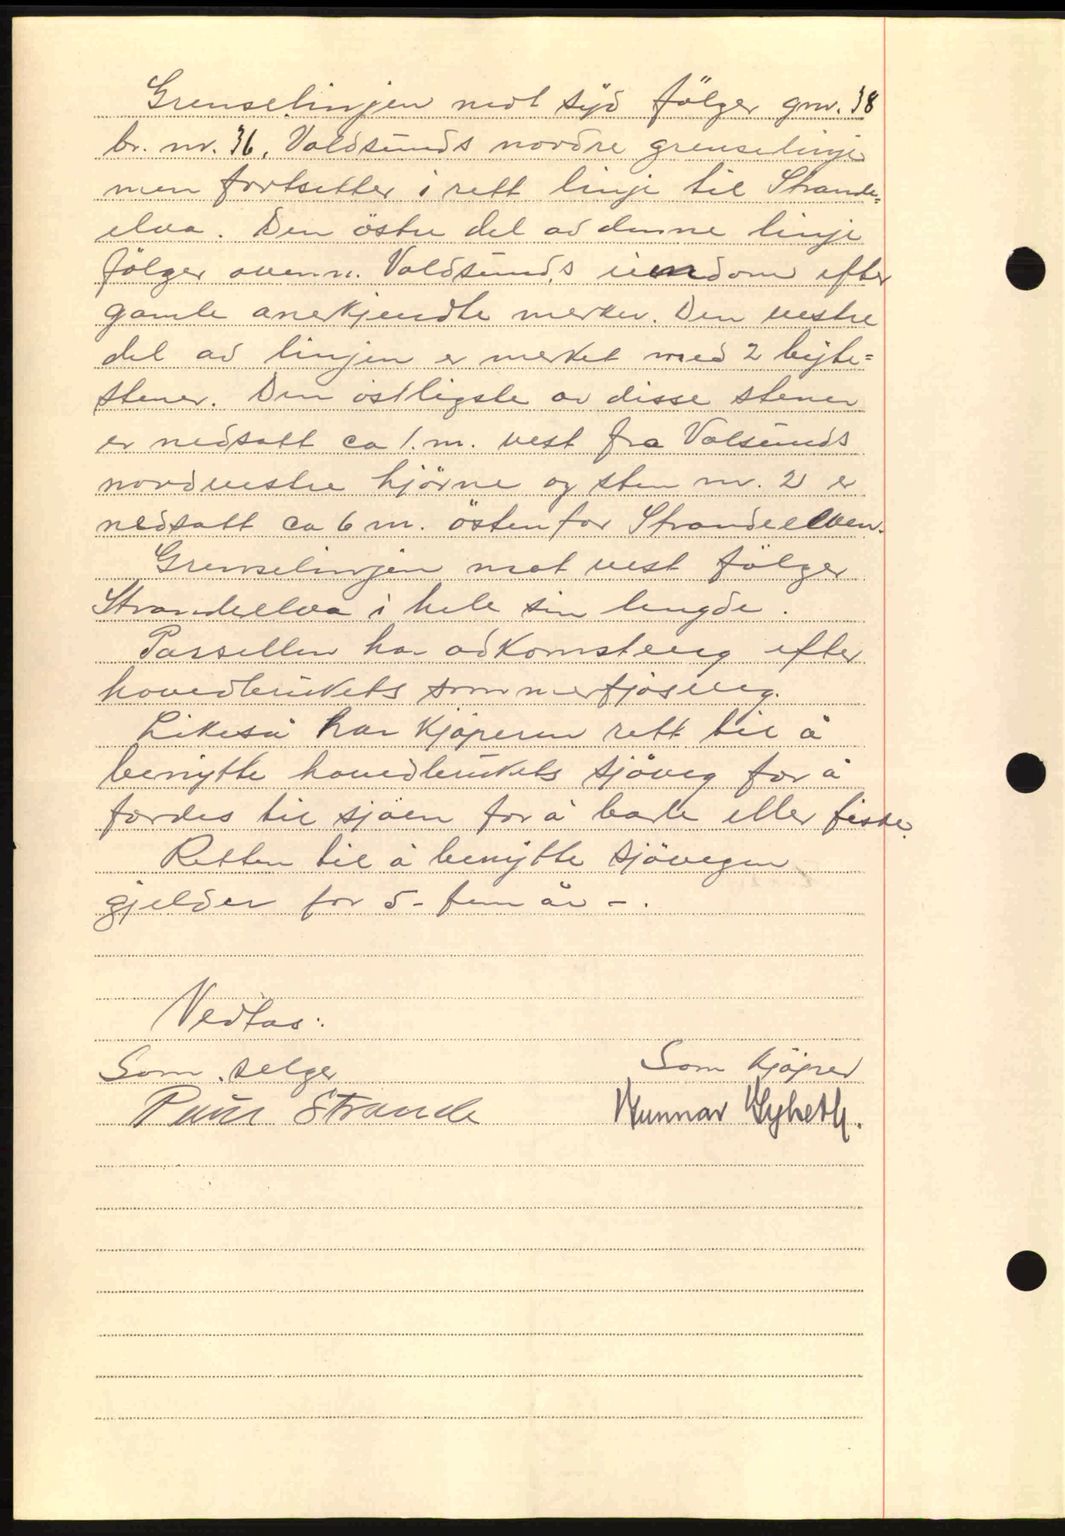 Grenselinjen mot syd följer gnr. 38
br. nr. 36, Valdsunds nordre grenselinje
men fortsetter i rett linje til Strande=
elva. Den östre del av denne linje
fölger ovenn. Valdsunds eiendom efter
gamle anerkjendte merker. Den vestre
del av linjen er merket med 2 byte=
stener. Den östligste av disse stener
er nedsatt ca 1. m. vest fra Valsunds
nordvestre hjörne og sten nr. 2 er
nedsatt ca 6 m. östenfor Strandeelven.
Grenselinjen mot vest fölger
Strandeelva i hele sin lengde.
Parsellen har adkomstveg efter
hovedbrukets sommerfjösveg.
Likeså har kjöperen rett til å
benytte hovedbrukets sjöveg for å
ferdes til sjöen for å bade eller fiske.
Retten til å benytte sjövegen
gjelder for 5 - fem år - .
Vedtas:
Som selger
Som kjöper
Paul Strande
Gunnar Nyheth.